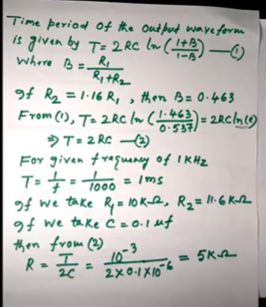 Time period of the output waveform
is given by T = 2RC ln (1+B/1-B) —(1)
where B = R1/R1+R2
If R2 = 1.16 R1, then B = 0.463
From (1), T = 2RC ln (1.463/0.537) = 2RC ln(e)
⇒ T = 2RC —(2)
For given frequency of 1KHz
T = 1/f = 1/1000 = 1ms
If we take R1 = 10KΩ, R2 = 11.6KΩ
If we take C = 0.1 μf
then from (2)
R = T/2C = 10^-3/2×0.1×10^-6 = 5KΩ